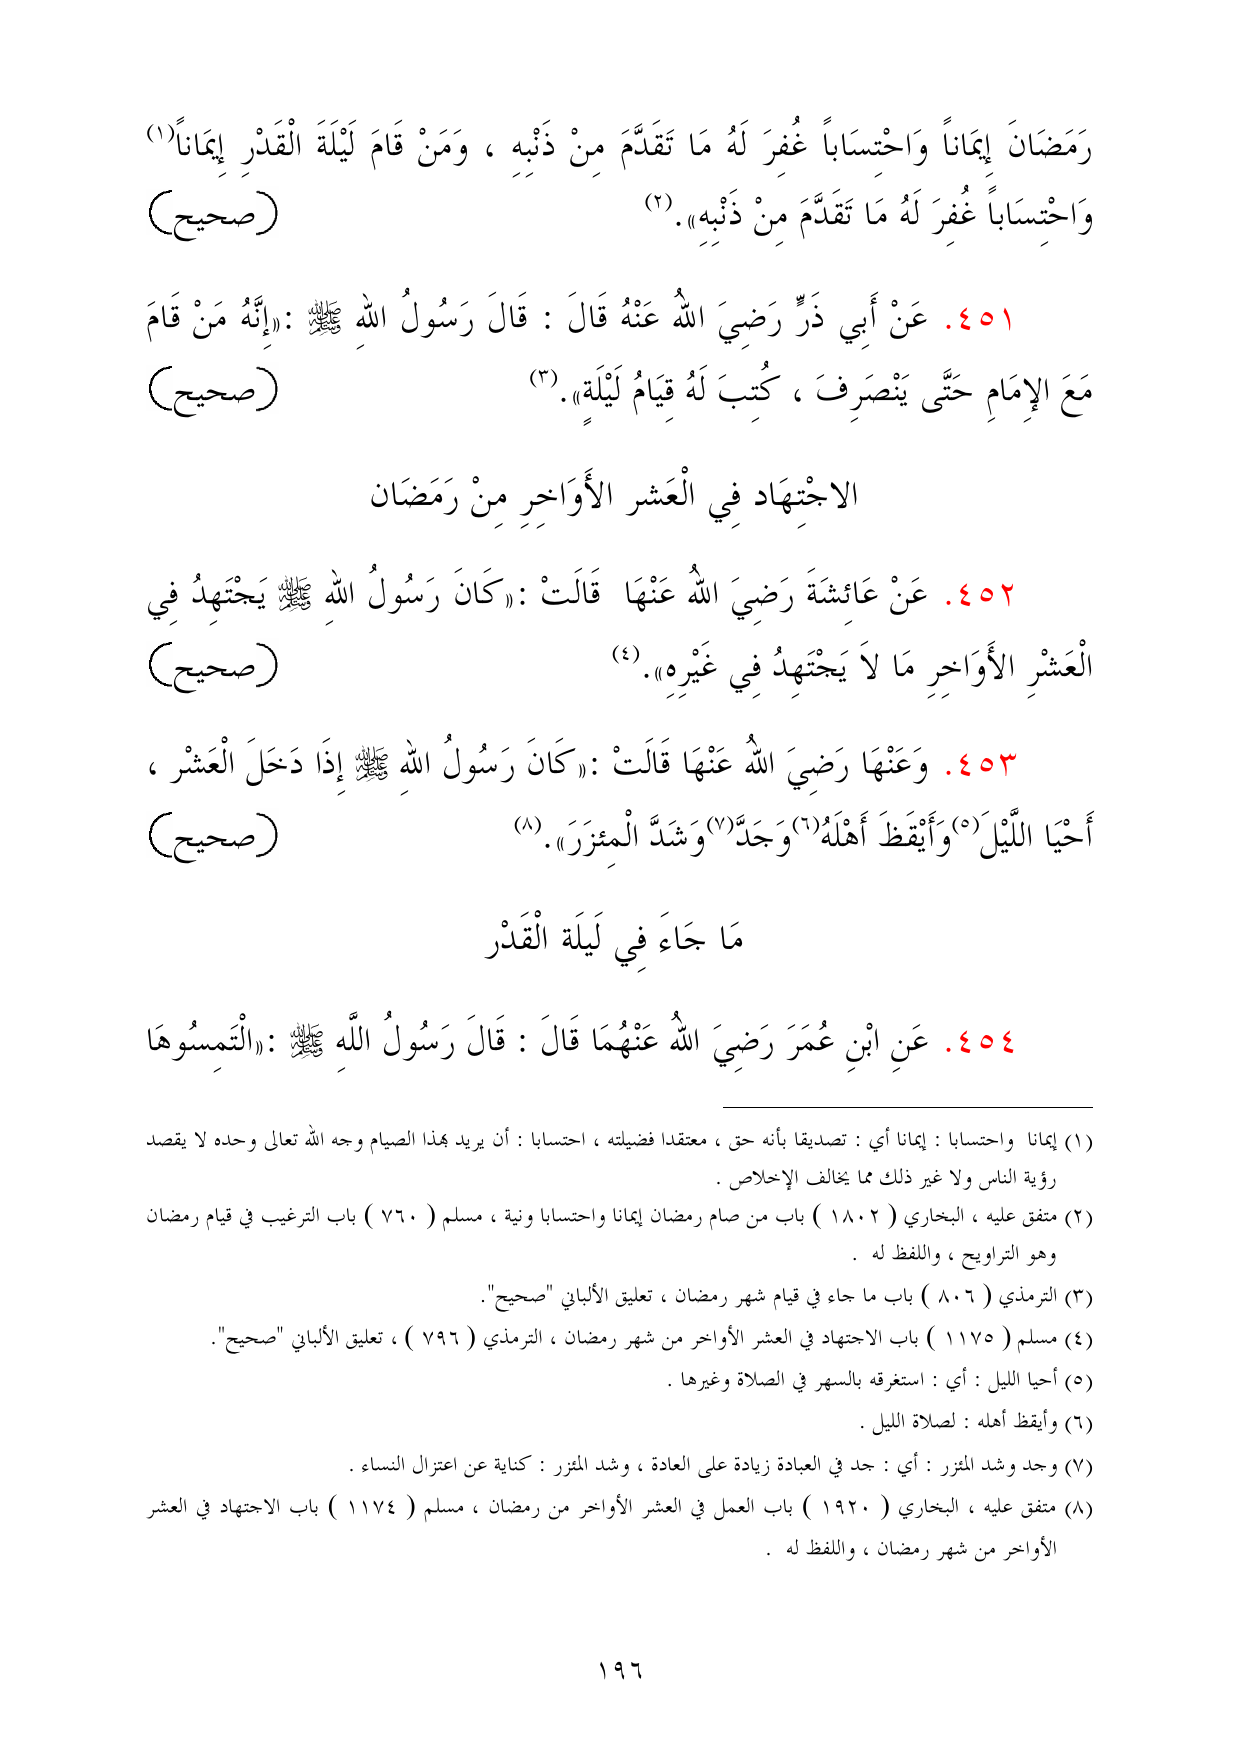 رَمَضَانَ إِيمَاناً وَاحْتِسَاباً غُفِرَ لَهُ مَا تَقَدَّمَ مِنْ ذَنْبِهِ ، وَمَنْ قَامَ لَيْلَةَ الْقَدْرِ إِيمَاناً(١)
وَاحْتِسَاباً غُفِرَ لَهُ مَا تَقَدَّمَ مِنْ ذَنْبِهِ».(٢) (صحيح)
٤٥١. عَنْ أَبِي ذَرٍّ رَضِيَ اللهُ عَنْهُ قَالَ : قَالَ رَسُولُ اللهِ ﷺ :«إِنَّهُ مَنْ قَامَ
مَعَ الإِمَامِ حَتَّى يَنْصَرِفَ ، كُتِبَ لَهُ قِيَامُ لَيْلَةٍ».(٣) (صحيح)
الاجْتِهَاد فِي الْعَشر الأَوَاخِرِ مِنْ رَمَضَان
٤٥٢. عَنْ عَائِشَةَ رَضِيَ اللهُ عَنْهَا قَالَتْ :«كَانَ رَسُولُ اللهِ ﷺ يَجْتَهِدُ فِي
الْعَشْرِ الأَوَاخِرِ مَا لاَ يَجْتَهِدُ فِي غَيْرِهِ».(٤) (صحيح)
٤٥٣. وَعَنْهَا رَضِيَ اللهُ عَنْهَا قَالَتْ :«كَانَ رَسُولُ اللهِ ﷺ إِذَا دَخَلَ الْعَشْر ،
أَحْيَا اللَّيْلَ(٥)وَأَيْقَظَ أَهْلَهُ(٦)وَجَدَّ(٧)وَشَدَّ الْمِئزَرَ».(٨) (صحيح)
مَا جَاءَ فِي لَيلَة الْقَدْر
٤٥٤. عَنِ ابْنِ عُمَرَ رَضِيَ اللهُ عَنْهُمَا قَالَ : قَالَ رَسُولُ اللَّهِ ﷺ :«الْتَمِسُوهَا
(١) إيمانا واحتسابا : إيمانا أي : تصديقا بأنه حق ، معتقدا فضيلته ، احتسابا : أن يريد بهذا الصيام وجه الله تعالى وحده لا يقصد
رؤية الناس ولا غير ذلك مما يخالف الإخلاص .
(٢) متفق عليه ، البخاري ( ١٨٠٢ ) باب من صام رمضان إيمانا واحتسابا ونية ، مسلم ( ٧٦٠ ) باب الترغيب في قيام رمضان
وهو التراويح ، واللفظ له .
(٣) الترمذي ( ٨٠٦ ) باب ما جاء في قيام شهر رمضان ، تعليق الألباني "صحيح".
(٤) مسلم ( ١١٧٥ ) باب الاجتهاد في العشر الأواخر من شهر رمضان ، الترمذي ( ٧٩٦ ) ، تعليق الألباني "صحيح".
(٥) أحيا الليل : أي : استغرقه بالسهر في الصلاة وغيرها .
(٦) وأيقظ أهله : لصلاة الليل .
(٧) وجد وشد المئزر : أي : جد في العبادة زيادة على العادة ، وشد المئزر : كناية عن اعتزال النساء .
(٨) متفق عليه ، البخاري ( ١٩٢٠ ) باب العمل في العشر الأواخر من رمضان ، مسلم ( ١١٧٤ ) باب الاجتهاد في العشر
الأواخر من شهر رمضان ، واللفظ له .
١٩٦